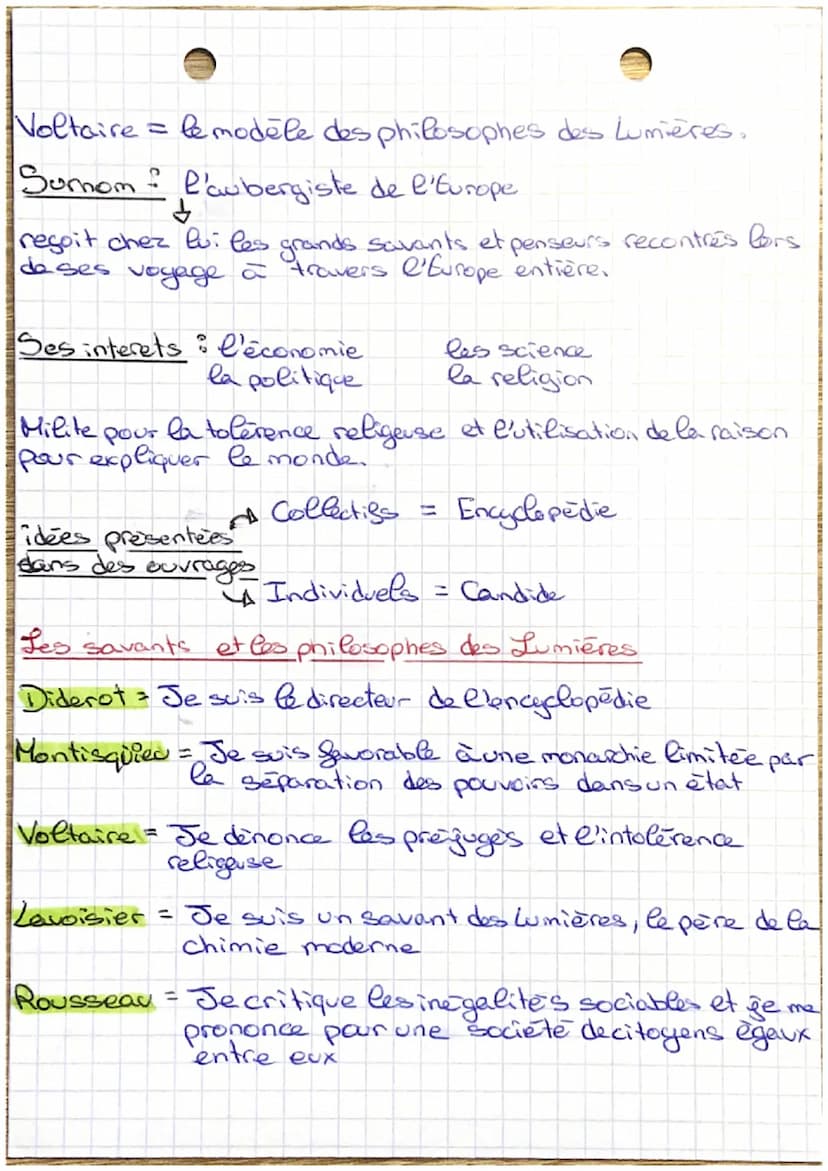 Voltaire = le modèle des philosophes des Lumières.
Surnom : l'aubergiste de l'Europe
reçoit chez lui les grands savants et penseurs recontrés lors
de ses voyage à travers l'Europe entière.
Ses interets : l'économie les science
la politique la religion
Milite pour la tolérence religeuse et l'utilisation de la raison
pour expliquer le monde.
Collectifs = Encyclopédie
idées présentées
dans des ouvrages
Individuels = Candide
Les savants et les philosophes des Lumières
Diderot = Je suis le directeur de l'encyclopédie
Montisquieu = Je suis favorable à une monarchie limitée par
la séparation des pouvoirs dans un état
Voltaire = Je dénonce les préjugés et l'intolérence
religeuse
Lavoisier = Je suis un savant des Lumières, le père de la
chimie moderne
Rousseau = Je critique les inégalités sociables et je me
prononce pour une société de citoyens égaux
entre eux